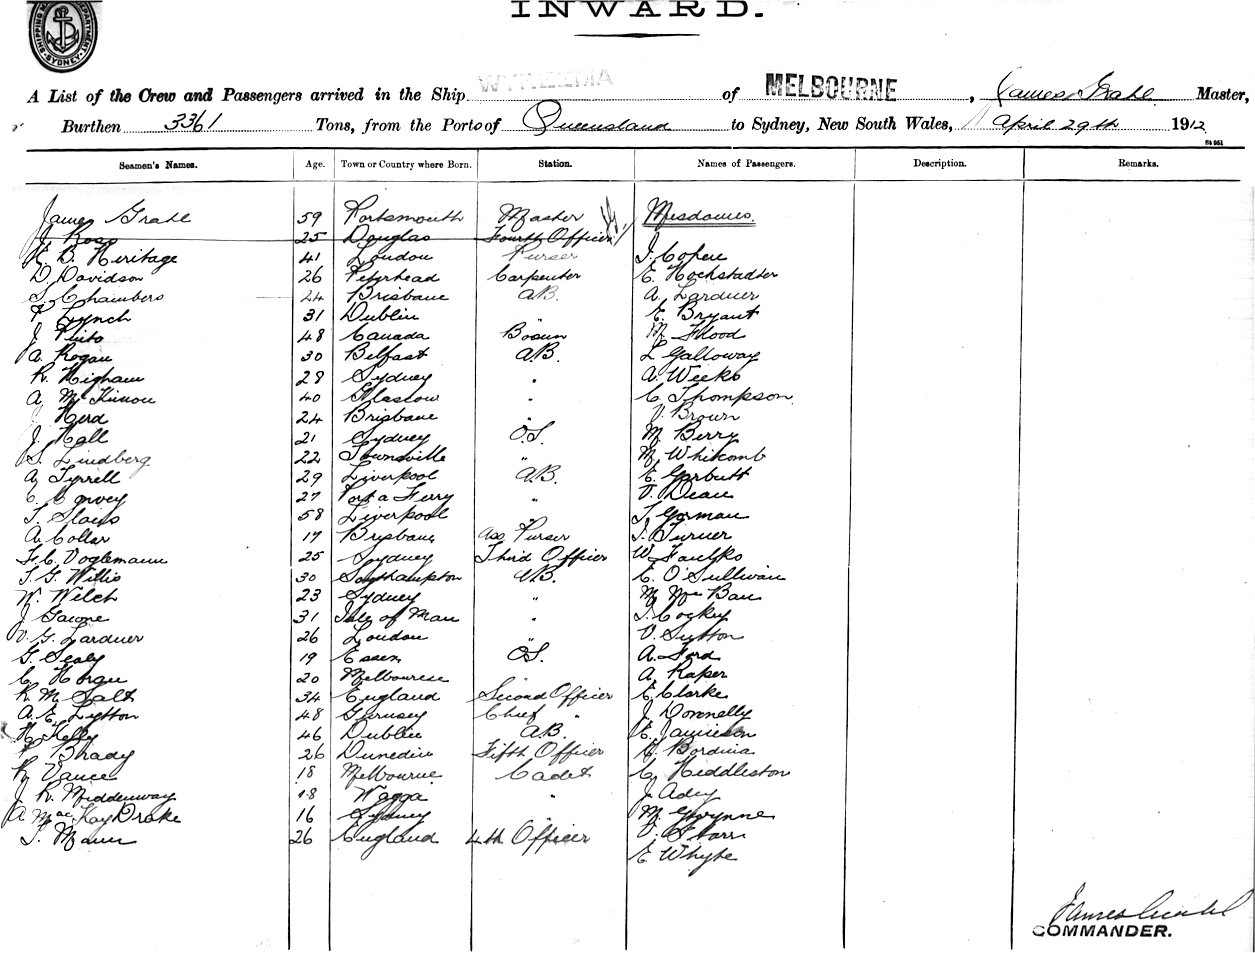 INWARD.
SHIPPING DEPARTMENT. SYDNEY
A List of the Crew and Passengers arrived in the Ship WYREEMA of MELBOURNE, James Grahl Master,
Burthen 3361 Tons, from the Port of Queensland to Sydney, New South Wales, April 29th 1912
St 951
Seamen's Names. Age. Town or Country where Born. Station. Names of Passengers. Description. Remarks.
James Grahl 59 Portsmouth Master Mesdames.
J Ross 25 Douglas Fourth Officer
H. B. Heritage 41 London Purser J. Cohen
D. Davidson 26 Peterhead Carpenter E. Hochstadter
S. Chambers 24 Brisbane A.B. A. Lardner
P Lynch 31 Dublin " E. Bryant
J Pinto 48 Canada Bosun M Flood
A. Rogan 30 Belfast A.B. L Galloway
R. Higham 28 Sydney " A. Weeks
A McKinnon 40 Glasgow " C. Thompson
J Herd 24 Brisbane " V. Brown
J. Hall 21 Sydney O.S. M. Berry
S. Lindberg 22 Townsville " M. Whitcomb
A. Tyrrell 29 Liverpool A.B. E. Garbutt
C. Garvey 27 Porta Ferry " V. Dean
T. 58 Liverpool T. Gorman
A. Collar 17 Brisbane Ass Purser J. Turner
F. C. Voglemann 25 Sydney Third Officer W.
T. G. Willis 30 Southampton A.B. C. O'Sullivan
W. Welch 23 Sydney " M. Mc Bau
J 31 Isle of Man " T. Cockey
V. G. Lardner 26 London " V. Sutton
G. Sealy 19 Essex O.S. A. Ford
C. Horgu 20 Melbourne A. Raper
R. M. Salt 34 England Second Officer E. Clarke
A. E. Lytton 48 Guernsey Chief " J. Donnelly
H. Kelly 46 Dublin A.B. E. Jamieson
P Brady 26 Dunedin Fifth Officer G. Bordina
R. Vance 18 Melbourne Cadet C. Hiddleston
J. R. Middenway 18 Wagga " J. Adey
A Mac Kay Drake 16 Sydney " M. Gwynne
T. Mann 26 England 4th Officer V. Starr
E. Whyte
James Grahl
COMMANDER.